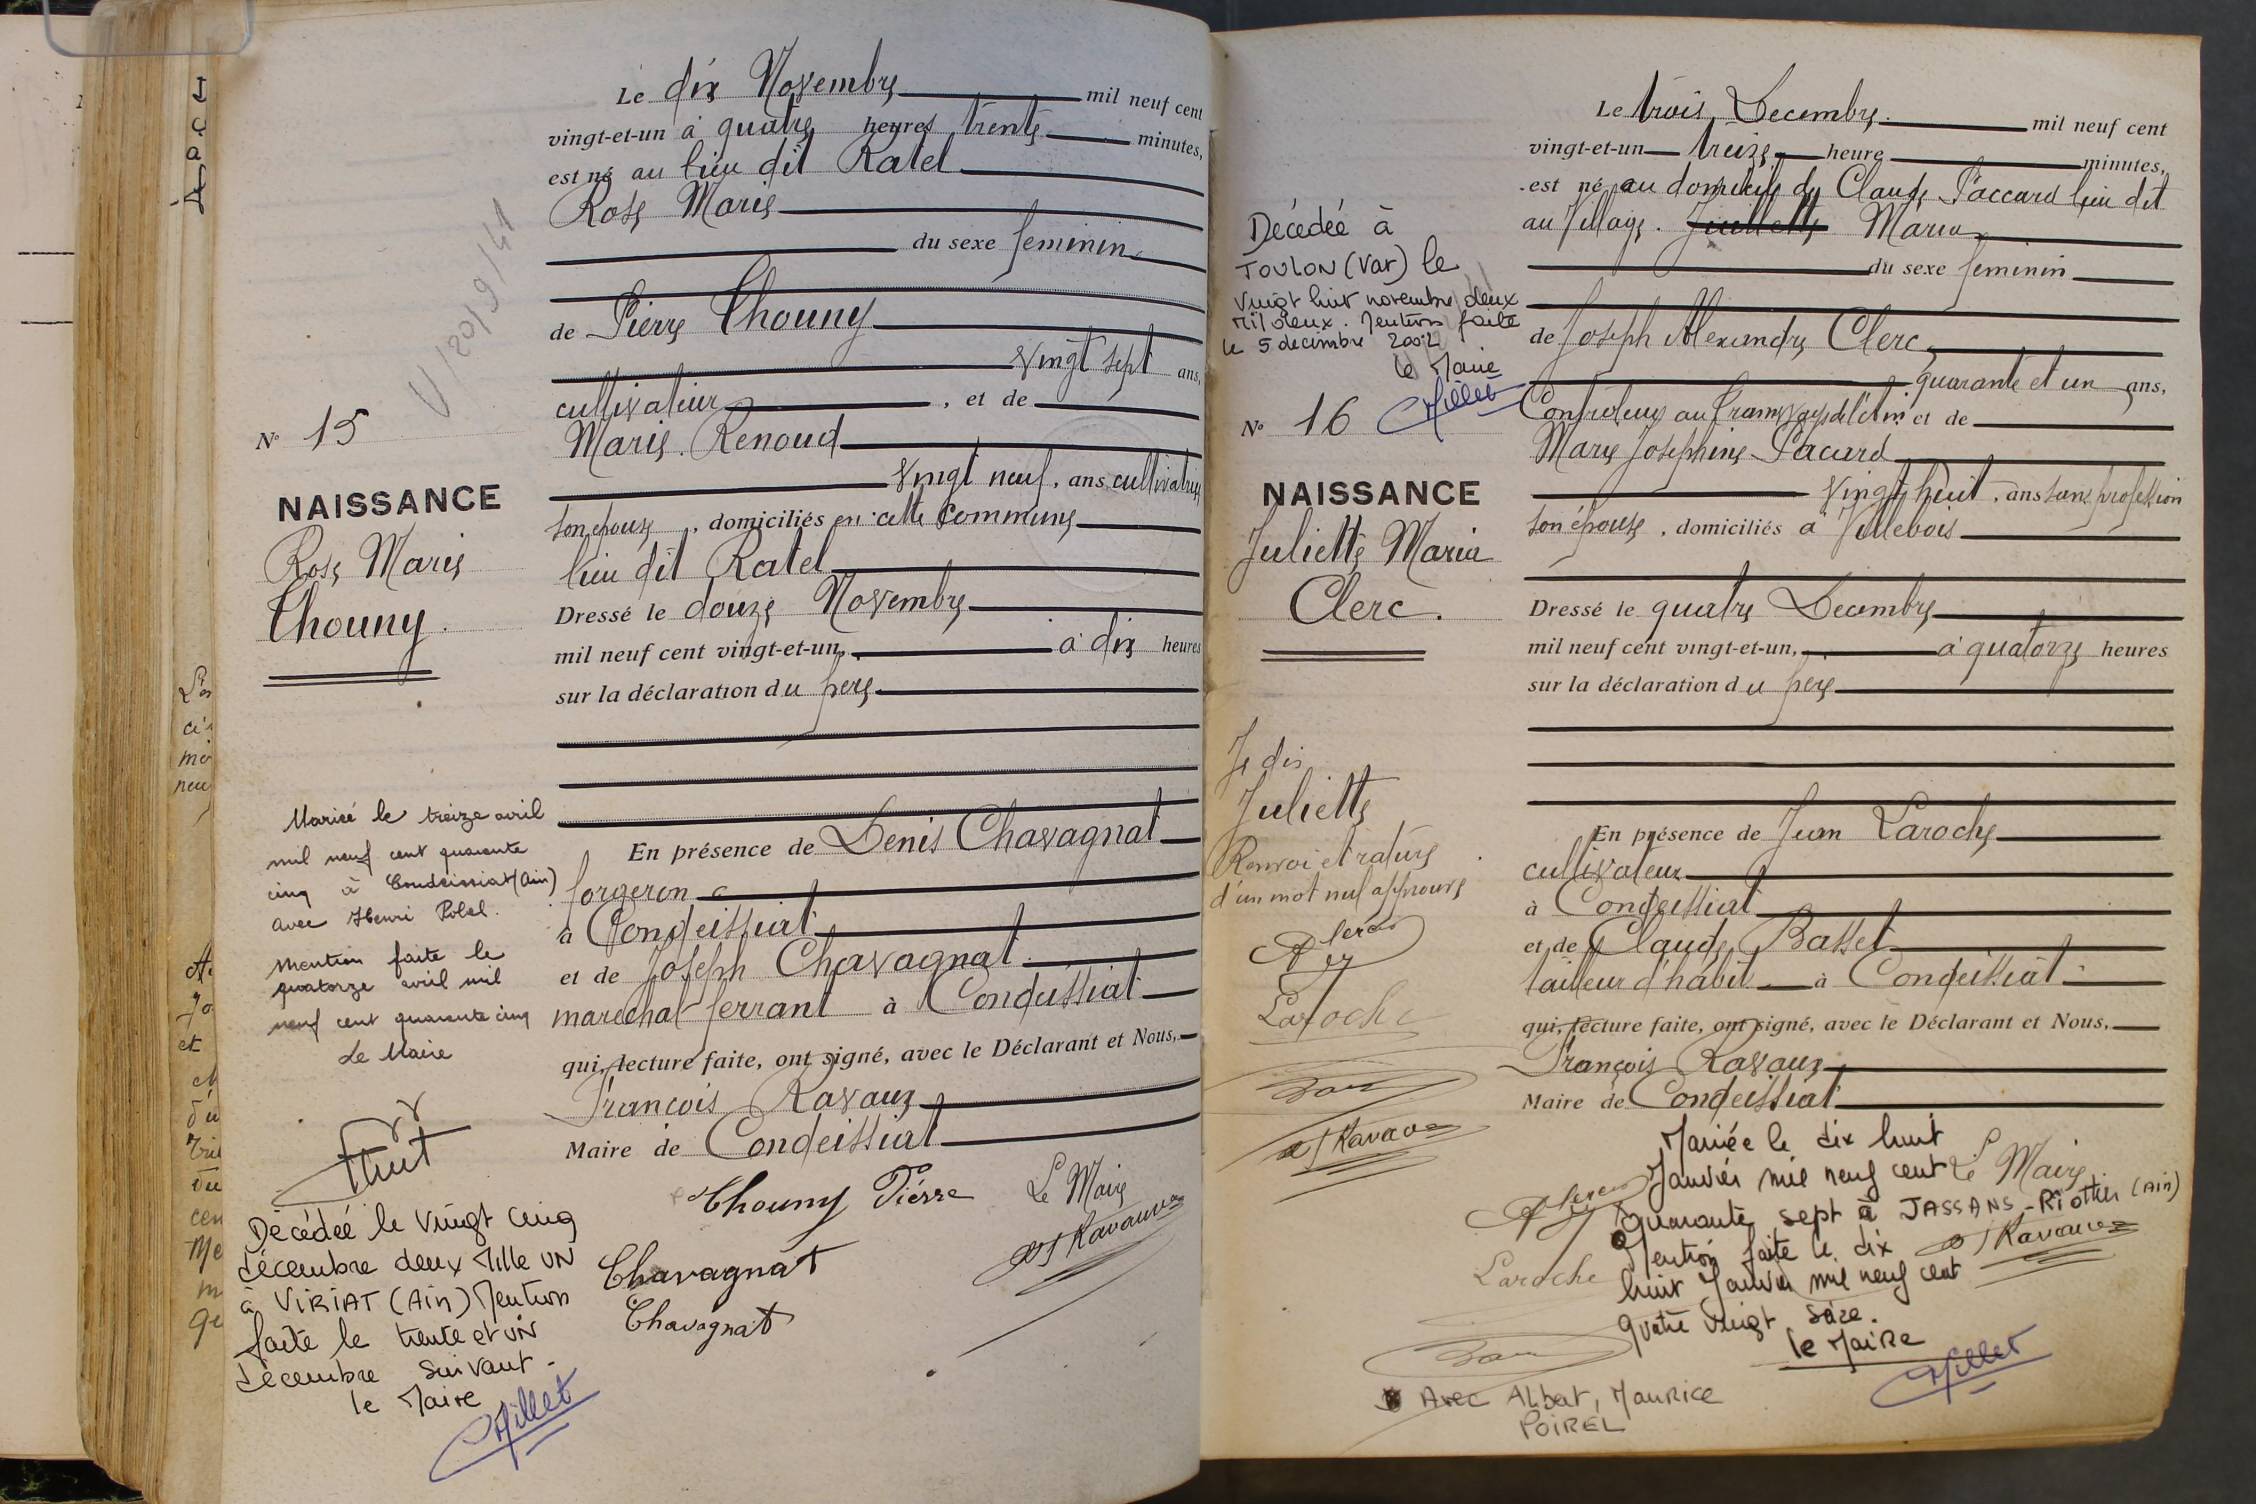 N° 15
NAISSANCE
Rose Marie
Thouny.
Mariée le treize avril
mil neuf cent quarante
cinq à Condeissiat (Ain)
avec Henri Pobel.
Mention faite le
quatorze avril mil
neuf cent quarante cinq
Le Maire
Décédée le Vingt cinq
décembre deux Mille UN
à VIRIAT (Ain) Mention
faite le trente et UN
décembre suivant.
le Maire
Millet
Le dix Novembre mil neuf cent
vingt-et-un à quatre heures trente minutes,
est né au lieu dit Ratel
Rose Marie
du sexe feminin
de Pierre Thouny
vingt sept ans,
cultivateur, et de
Marie Renoud
vingt neuf, ans cultivatrice
son épouse, domiciliés en cette Commune
lieu dit Ratel
Dressé le douze Novembre
mil neuf cent vingt-et-un, à dix heures
sur la déclaration du pere
En présence de Denis Chavagnat
forgeron
à Condeissiat
et de Joseph Chavagnat
marechal ferrant à Condeissiat
qui, lecture faite, ont signé, avec le Déclarant et Nous,
François Ravaux
Maire de Condeissiat
Thouny Pierre Le Maire
Chavagnat Ravaux
Chavagnat
Décédée à
TOULON (Var) le
Vingt huit novembre deux
Mil deux. Mention faite
le 5 decembre 2002
le Maire
Millet
N° 16
NAISSANCE
Juliette Maria
Clerc.
Je dis
Juliette
Renvoi et rature
d'un mot nul approuvé
Clerc
Laroche
Ravaux
Le trois Decembre mil neuf cent
vingt-et-un treize heure minutes,
est né au domicile de Claude Paccard lieu dit
au Village. Juillette Maria
du sexe feminin
de Joseph Alexandre Clerc
quarante et un ans,
Controleur au tramways de l'Ain et de
Marie Josephine Pacard
vingt huit, ans sans profession
son épouse, domiciliés à Villebois
Dressé le quatre Decembre
mil neuf cent vingt-et-un, à quatorze heures
sur la déclaration du pere
En présence de Jean Laroche
cultivateur
à Condeissiat
et de Claude Basset
tailleur d'habit à Condeissiat
qui, lecture faite, ont signé, avec le Déclarant et Nous,
François Ravaux
Maire de Condeissiat
Le Maire
Clerc
Ravaux
Laroche
Mariée le dix huit
Janvier mil neuf cent
quarante sept à JASSANS-Riottier (Ain)
Mention faite le dix
huit Janvier mil neuf cent
quatre vingt seize.
le Maire
Millet
Avec Albert, Maurice
POIREL